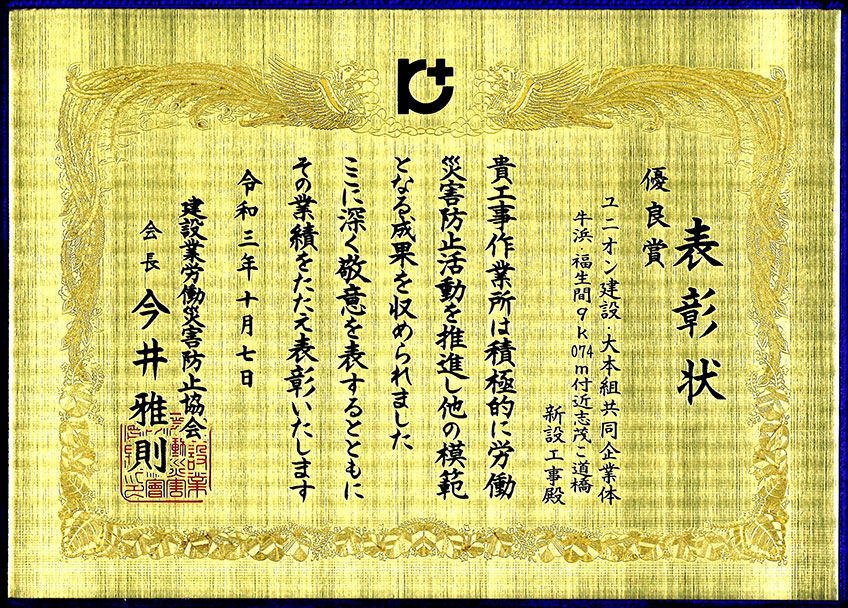 表彰状
優良賞
ユニオン建設・大本組共同企業体
牛浜・福生間9k074m付近志茂こ道橋
新設工事殿
貴工事作業所は積極的に労働
災害防止活動を推進し他の模範
となる成果を収められました
ここに深く敬意を表するとともに
その業績をたたえ表彰いたします
令和三年十月七日
建設業労働災害防止協会
会長 今井雅則